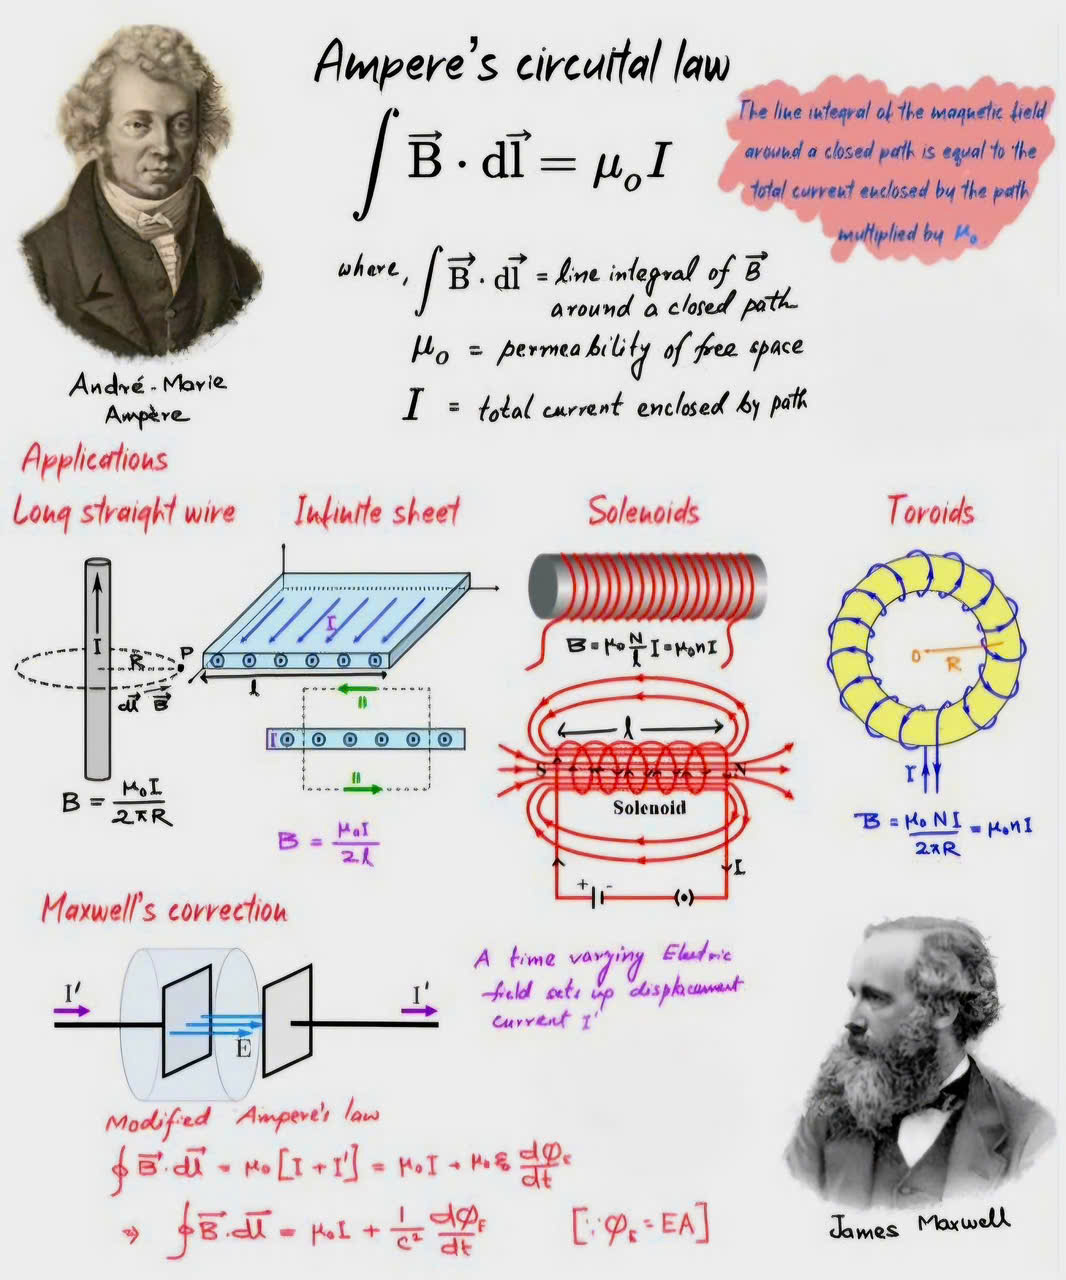 Ampere's circuital law
∫ B⃗ · dl⃗ = μₒI
The line integral of the magnetic field
around a closed path is equal to the
total current enclosed by the path
multiplied by μ₀
where, ∫ B⃗ · dl⃗ = line integral of B⃗
around a closed path
μₒ = permeability of free space
I = total current enclosed by path
André-Marie
Ampère
Applications
Long straight wire
I
R
P
dl⃗ B⃗
B = μ₀I / 2πR
Infinite sheet
I
l
H
I
H
B = μ₀I / 2l
Solenoids
B = μ₀ N/l I = μ₀nI
l
S
N
Solenoid
I
+ -
Toroids
O
R
I
B = μ₀NI / 2πR = μ₀nI
Maxwell's correction
I'
I'
E
A time varying Electric
field sets up displacement
current I'
Modified Ampere's law
∮ B⃗ · dl⃗ = μ₀[I + I'] = μ₀I + μ₀ε₀ dφ_E/dt
⇒ ∮ B⃗ · dl⃗ = μ₀I + 1/c² dφ_E/dt [∵ φ_E = EA]
James Maxwell